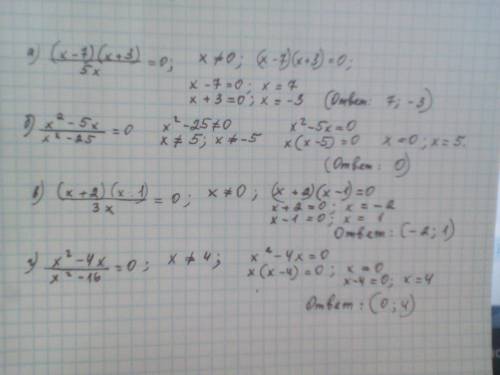 а) (x-7)(x+3)/5x = 0; x≠0; (x-7)(x+3)=0;
x-7=0; x=7
x+3=0; x=-3 (Ответ: 7; -3)
б) x²-5x/x²-25 = 0 x²-25≠0 x²-5x=0
x≠5; x≠-5 x(x-5)=0 x=0; x=5.
(Ответ: 0)
в) (x+2)(x-1)/3x = 0; x≠0; (x+2)(x-1)=0
x+2=0; x=-2
x-1=0; x=1
Ответ: (-2; 1)
г) x²-4x/x²-16 = 0; x≠4; x²-4x=0
x(x-4)=0; x=0
x-4=0; x=4
Ответ: (0; 4)